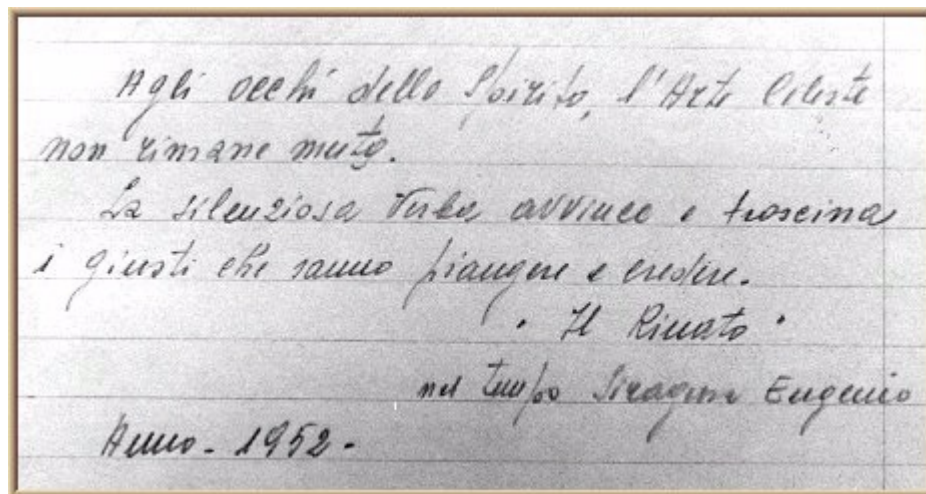 Agli occhi dello Spirito, l'Arte Celeste
non rimane muta.
La silenziosa Verba avvince e trascina
i giusti che sanno piangere e credere.
" Il Rinato "
nel tempo Siragusa Eugenio
Anno - 1952 -